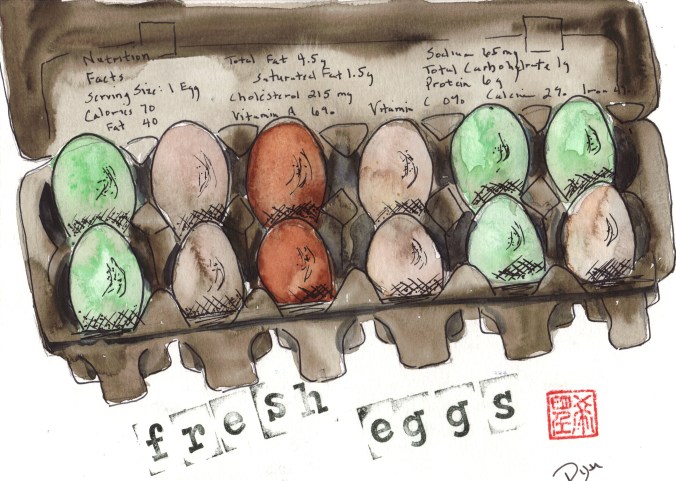 Nutrition
Facts
Serving Size: 1 Egg
Calories 70
Fat 40
Total Fat 4.5g
Saturated Fat 1.5g
Cholesterol 215 mg
Vitamin A 6%
Vitamin C 0%
Sodium 65 mg
Total Carbohydrate 1g
Protein 6g
Calcium 2% Iron 4%
fresh eggs